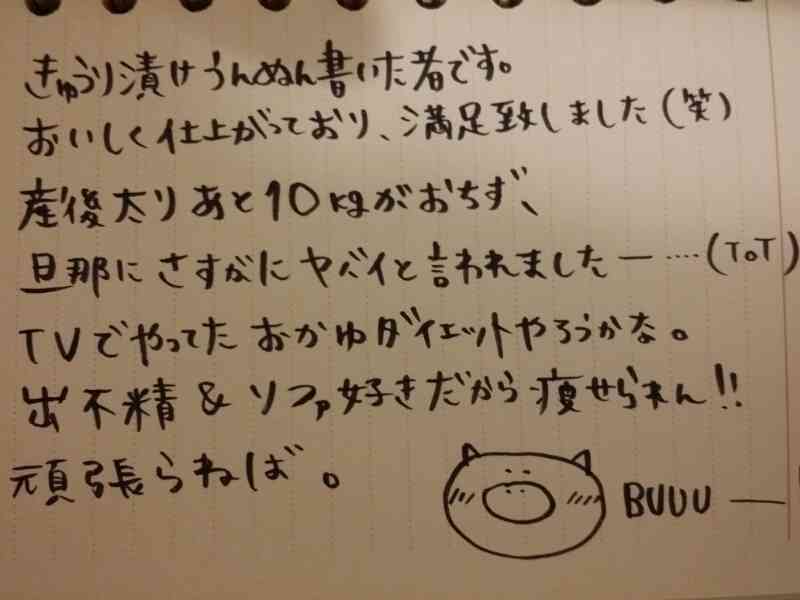 きゅうり漬けうんぬん書いた者です。
おいしく仕上がっており、満足致しました(笑)
産後太りあと10kgがおちず、
旦那にさすがにヤバイと言われましたー‥‥(ToT)
TVでやってたおかゆダイエットやろうかな。
出不精&ソファ好きだから痩せられん!!
頑張らねば。
BUUU―